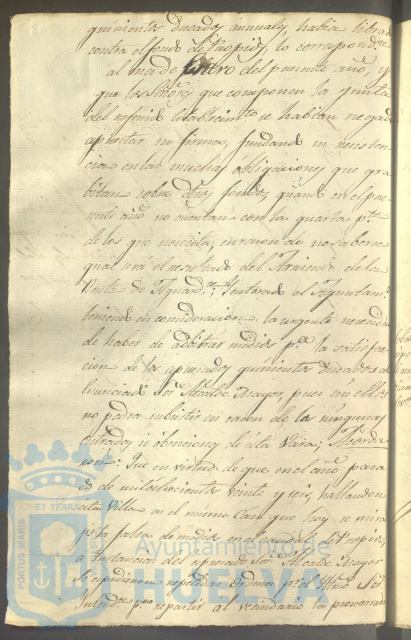 quinientos ducados annuales había librado
contra el fondo de Propios, lo correspond.te
al mes de Enero del presente año, y
que los Señores que componen la Junta
del referido establecim.to se habían negado
a prestar su firma, fundando su resisten-
cia en las muchas obligaciones que gra-
bitan sobre dhos fondos, quando en el pre-
sente año no cuentan con la quarta p.te
de los que necesita, en razon de no saberse
qual será el resultado del Arriendo de la
Renta de Aguard.te; Enterado el Ayuntam.to
teniendo en consideracion la urgente necesidad
de haber de adbitrar medios p.a la satisfac-
cion de los apreciados quinientos ducados al
licenciado Sor. Alcalde Mayor, pues sin ellos
no podrá subsistir en razon de las ningunas
entradas ú obenciones de esta Vara; Acorda
ron: Que en virtud de que en el año pasa-
do de mil ochocientos veinte y seis, hallandose
esta Villa en el mismo Caso que hoy se mira
p.r la falta de medios en el caudal de Propios,
a instancia del apreciado Sor. Alcalde Mayor
se expidieron repetidas Ordenes p.r el Yltmo Sor
Intend.te p.a repartir al vecindario la prenarrada
ET TERRÆ
PORTUS MARIS
Ayuntamiento de
HUELVA